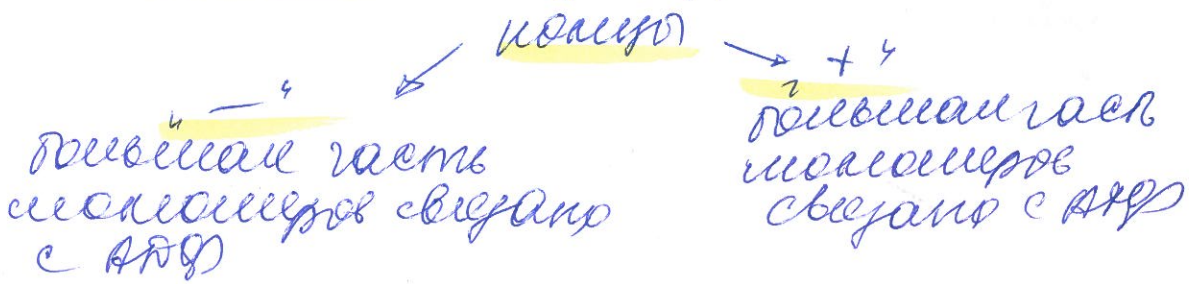 концы
"—"
"+"
большая часть
мономеров связано
с АДФ
большая часть
мономеров
связано с АТФ